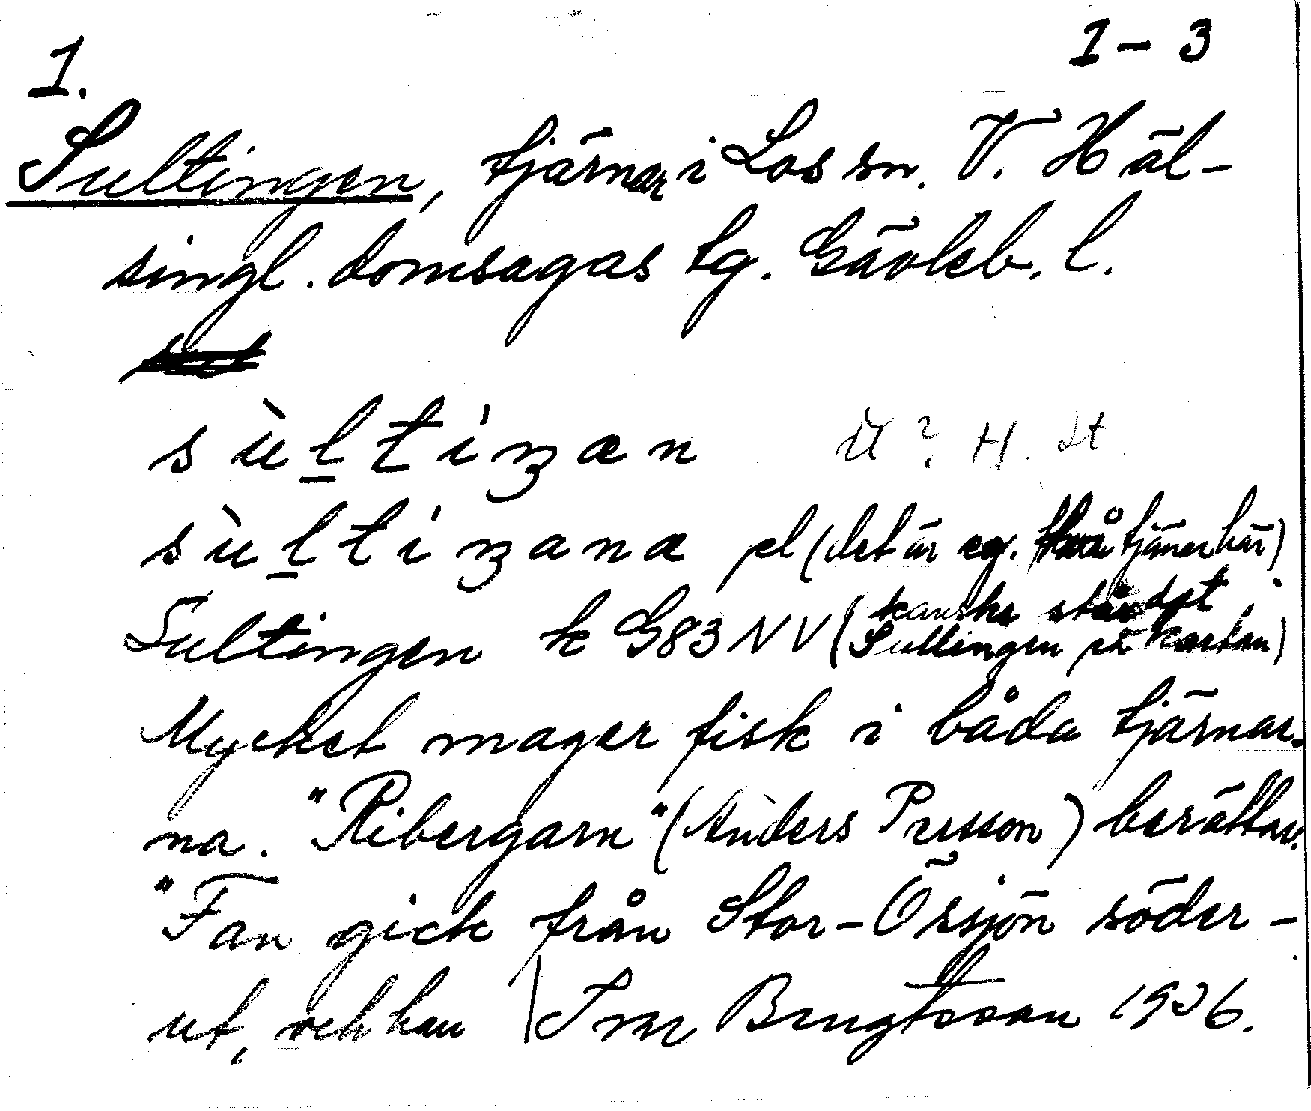 1. 1-3
Sultingen, tjärnar i Los sn. V. Häl-
singl. domsagas tg. Gävleb. l.
sùltiŋæn ìt? H. St
sùltiŋana pl (det är eg. två tjäner här)
Sultingen k G83 NV (kanske står det
Sullingen på kartan)
Mycket mager fisk i båda tjärnar-
na. "Ribergarn" (Anders Persson) berättar:
"Fan gick från Stor-Örsjön söder-
ut, och han | Ivar Bengtsson 1936.